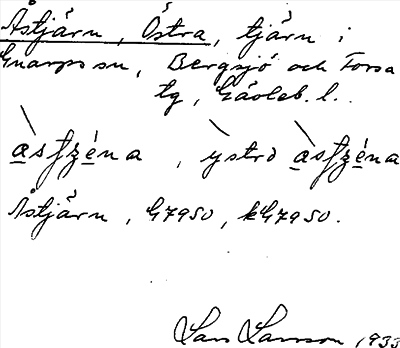 Åstjärn, Östra, tjärn i
Gnarps sn, Bergsjö och Forsa
tg, Gävleb. l.
àsʃʒéna, ỳstrɷ àsʃʒéna
Åstjärn, G7950, kG7950.
Lars Larsson 1933